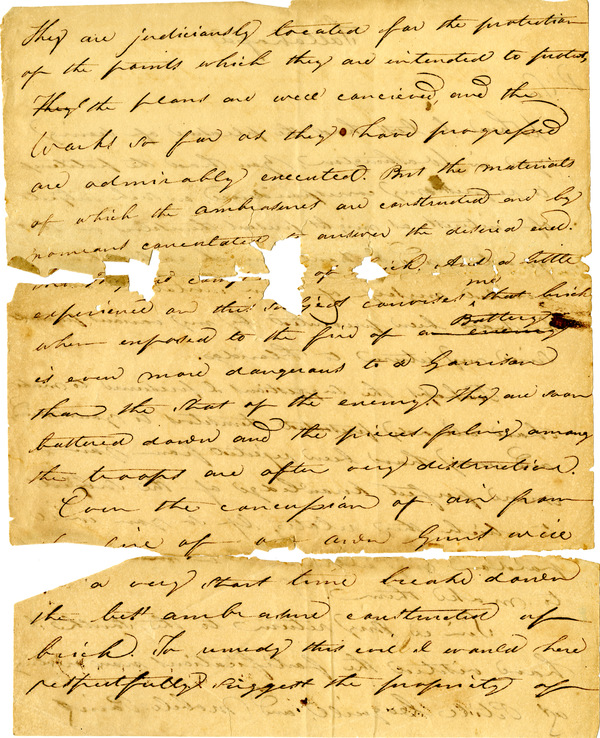 They are judiciously located for the protection
of the points which they are intended to protect,
They the plans are well concieved, and the
Works so far as they have progressed
are admirably executed. But the materials
of which the ambrasures are constructed are by
nomeans to answer the desired end.
of brick. And a little
experience on this subject convinces me that brick
when exposed to the fire of an enemy Battery
is even more dangerous to a Garrison
than the shot of the enemy. They are soon
battered down and the pieces faling among
the troops are often very distructive.
Even the concussion of air from
fire of own Guns will
a very short time break down
the best ambrasure constructed of
brick. To remedy this evil I would here
respectfully suggest the propriety of